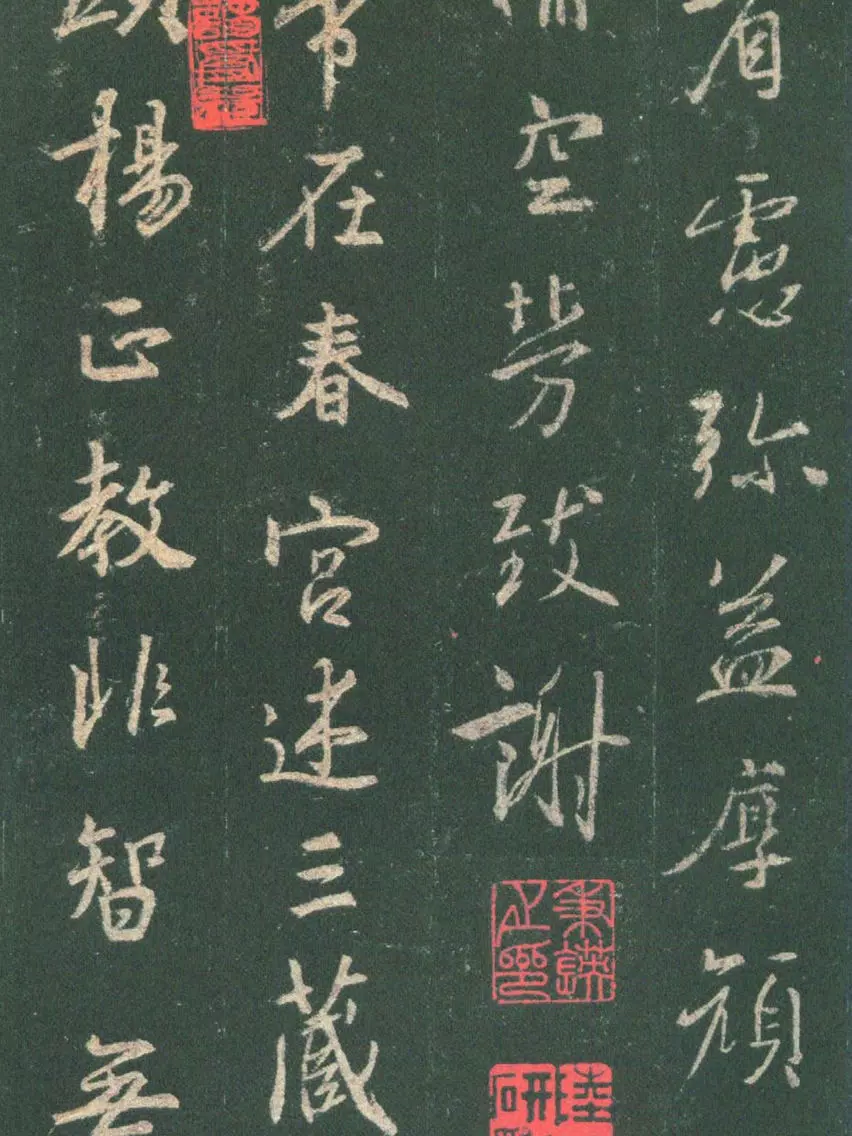 省慮弥益厚顔
稱空勞致謝
帝在春宮述三藏
顯楊正教非智無